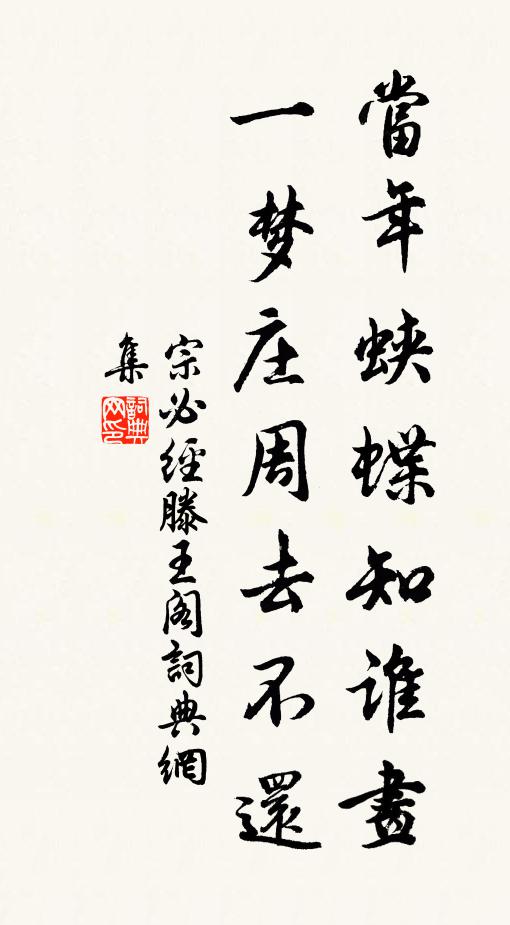 當年蛺蝶知誰畫
一梦庄周去不還
宗必經滕王阁詞典網
集
詞典网印